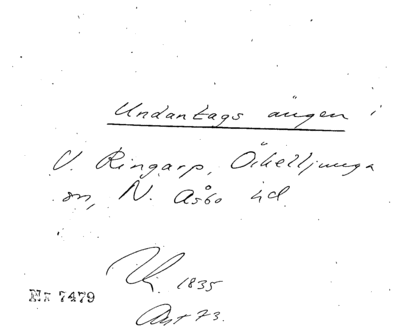 Undantags ängen i
V. Ringarp, Örkelljunga
sn, N. Åsbo hd
1835
Nr 7479